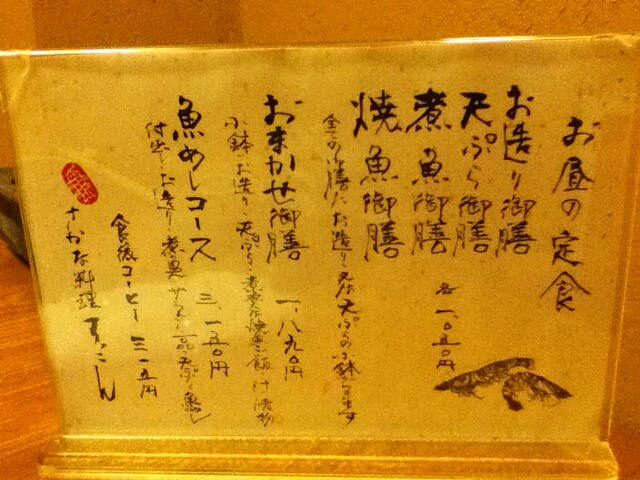 お昼の定食
お造り御膳
天ぷら御膳
煮魚御膳
焼魚御膳
各 一、〇五〇円
全ての御膳に、お造り又は天ぷらの小鉢
おまかせ御膳 一、八九〇円
小鉢・お造り・天ぷら・煮魚又は焼魚・ご飯・汁・漬物
魚めしコース 三、一五〇円
お造り・煮魚・サラダ
食後コーヒー 三一五円
さかな料理